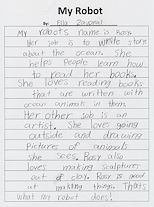 My Robot
By: Ella
My robots name is Rosy.
Her job is to write story
about the ocean. She
helps People learn how
to read her books.
She loves reading books
that are written with
ocean animals in them.
Her other job is an
artist. She loves going
outside and drawing
Pictures of animals
she sees. Rosy also
loves making sculptures
out of clay. Rosy is good
at making things. Thats
what my robot does!